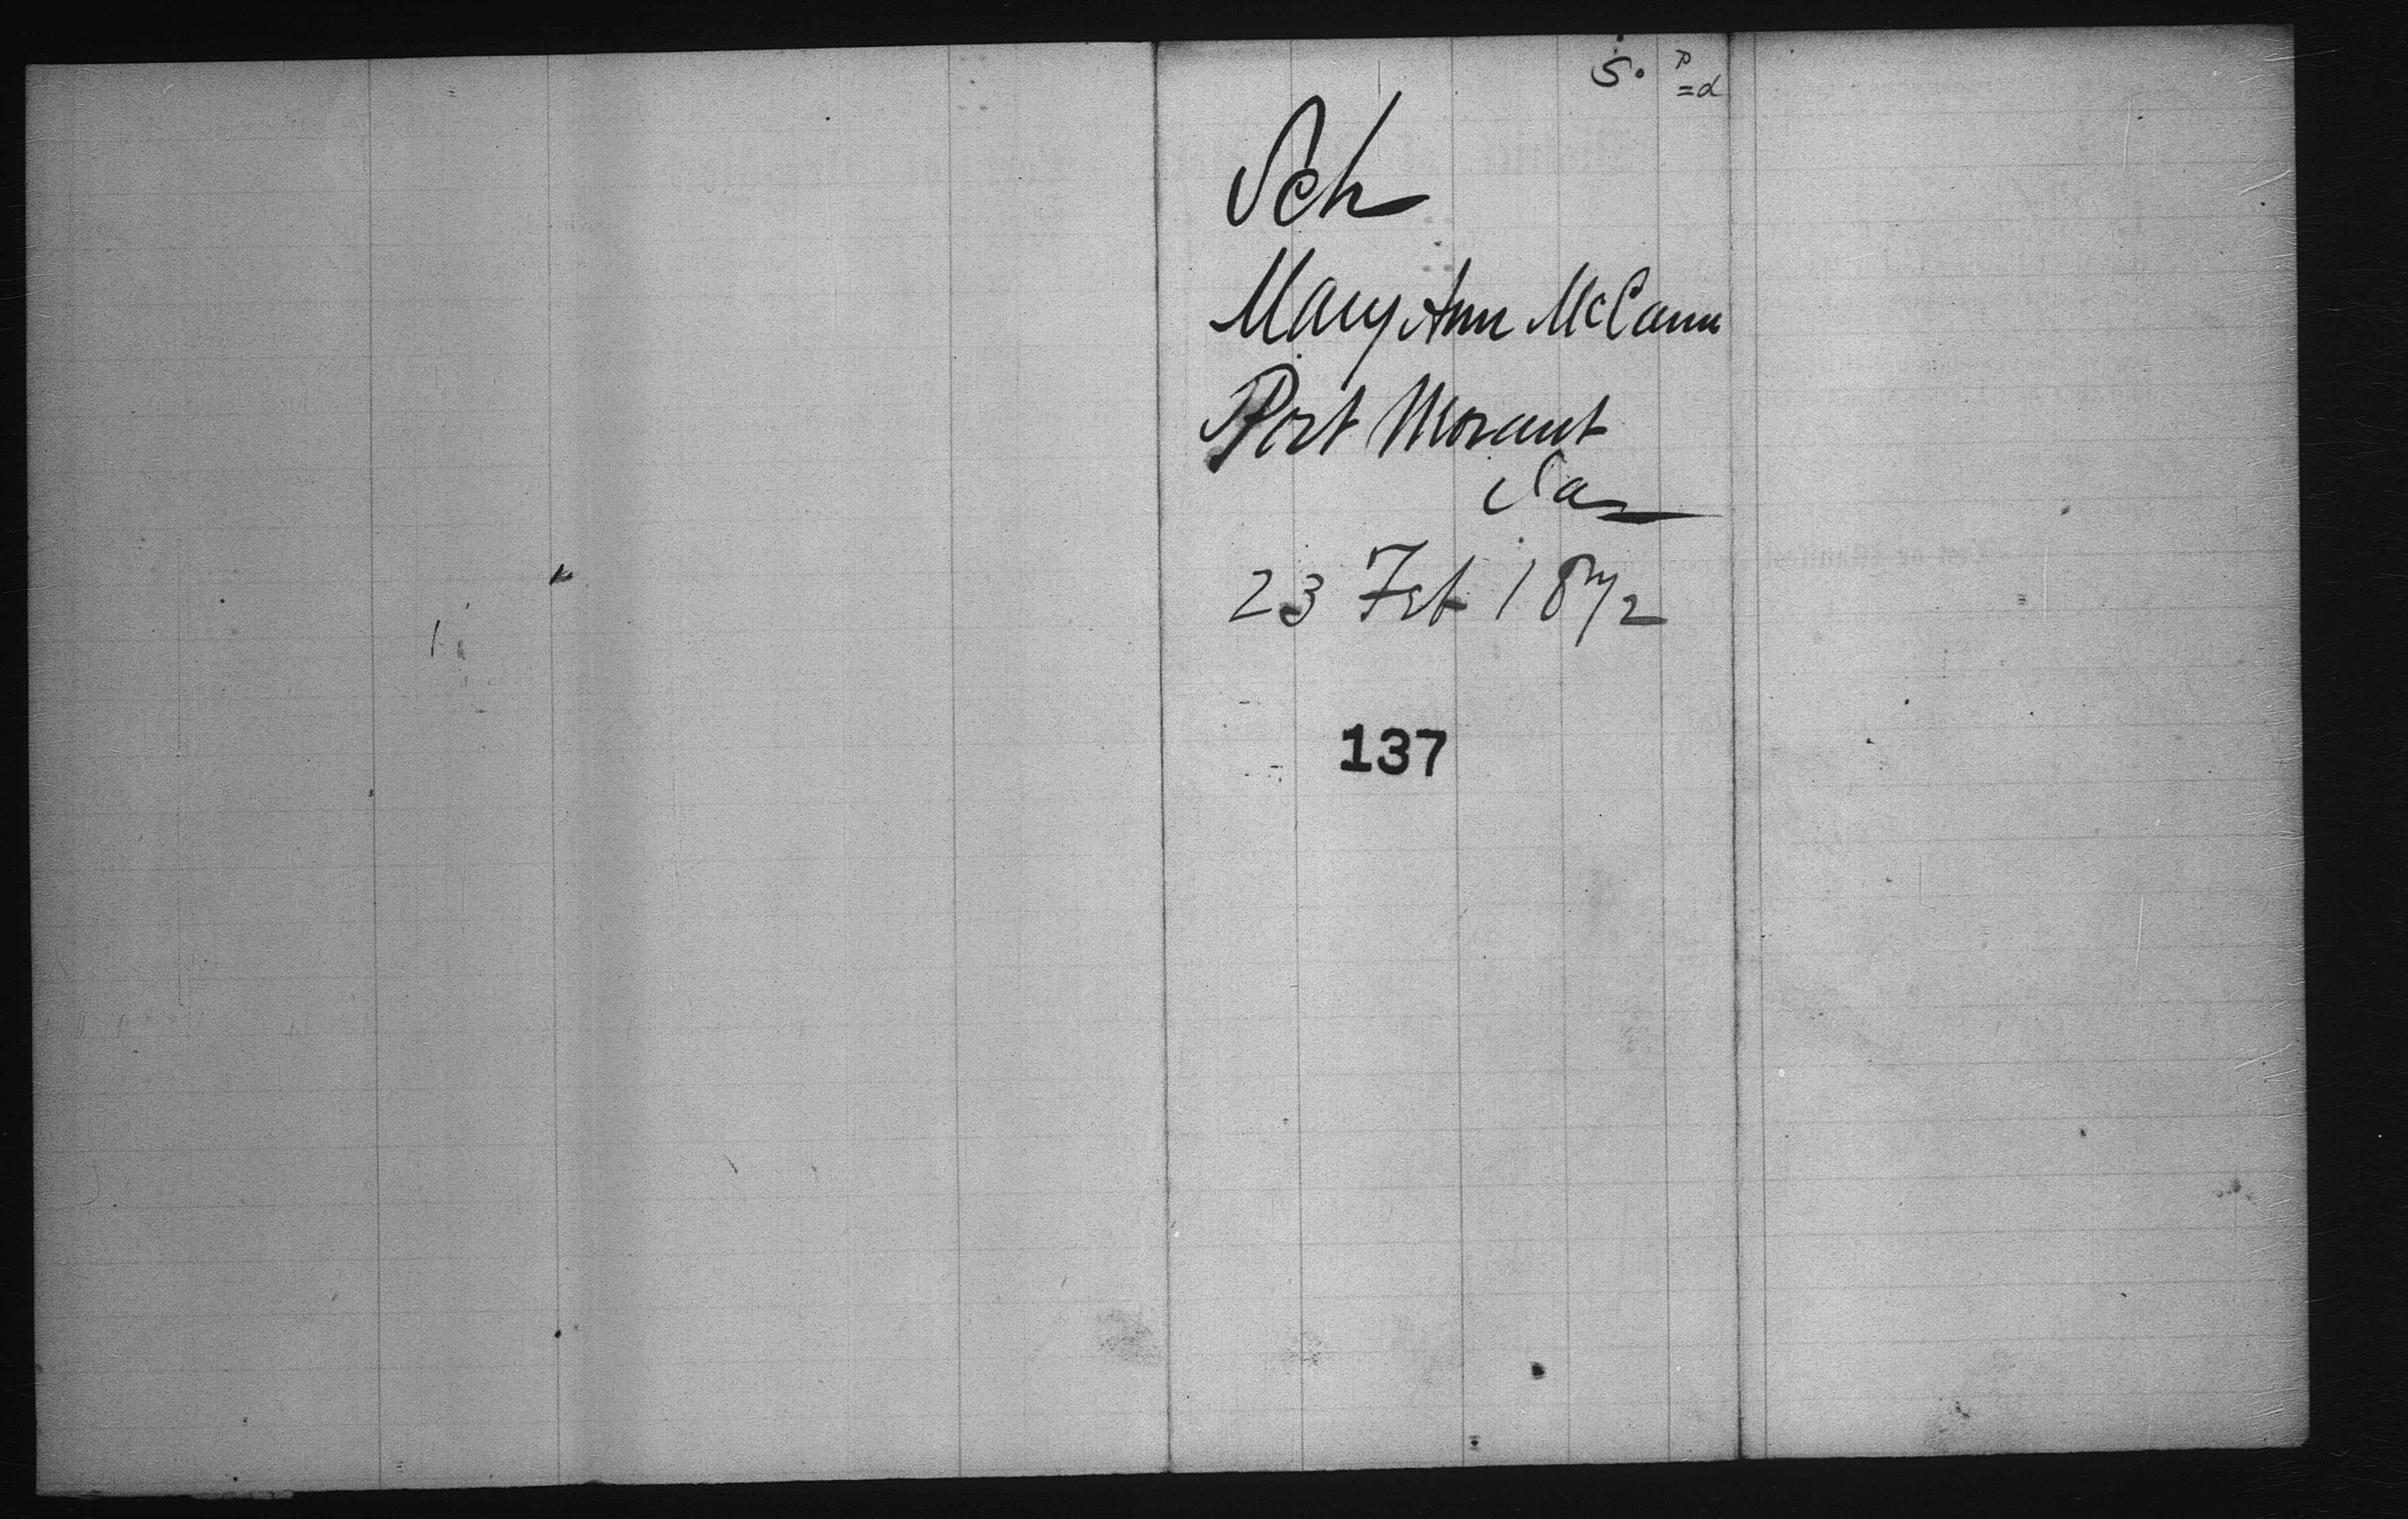 5.
Sch
Mary Ann McCann
Port Morant
Ja
23 Feb 1872
137